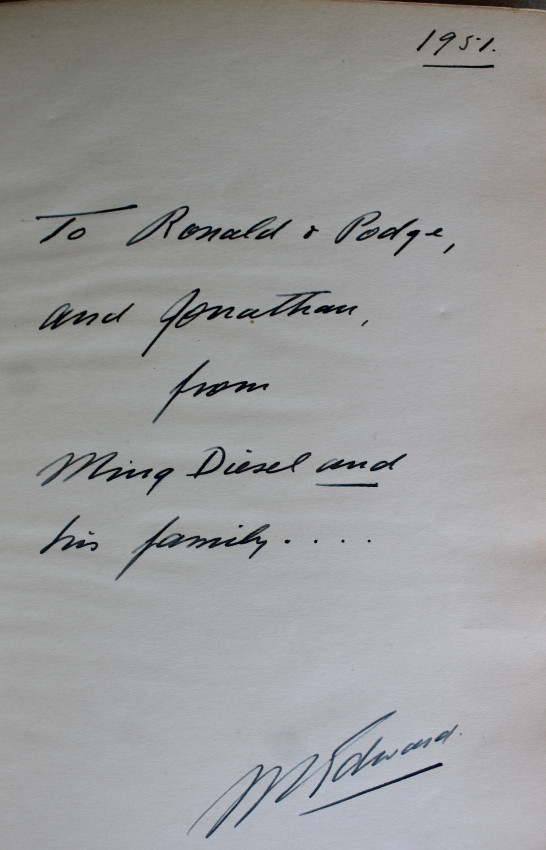 1951.
To Ronald & Podge,
and Jonathan,
from
Ming Diesel and
his family....
M Edward.